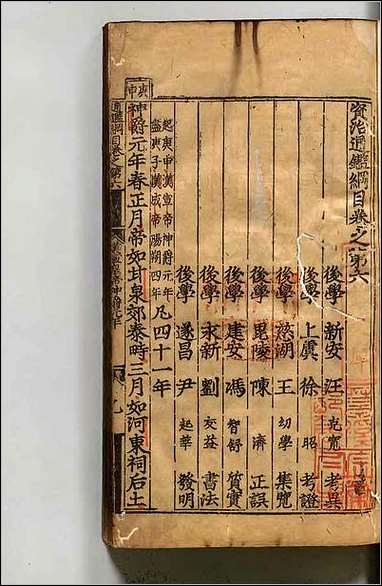 資治通鑑綱目卷之第六
後學 新安 汪 克寬 考異
後學 上虞 徐 昭 考證
後學 慈湖 王 幼學 集覽
後學 毘陵 陳 濟 正誤
後學 建安 馮 智舒 質實
後學 永新 劉 友益 書法
後學 遂昌 尹 起莘 發明
起庚申漢宣帝神爵元年
盡庚子漢成帝陽朔四年
凡四十一年
庚申
神爵元年春正月帝如甘泉郊泰畤三月如河東祠后土
通鑑綱目卷之第六